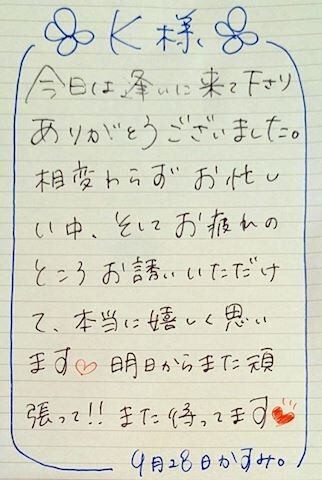 K様
今日は逢いに来て下さり
ありがとうございました。
相変わらずお忙し
い中、そしてお疲れの
ところお誘いいただけ
て、本当に嬉しく思い
ます♡ 明日からまた頑
張って!! また待ってます♥
9月28日かすみ。